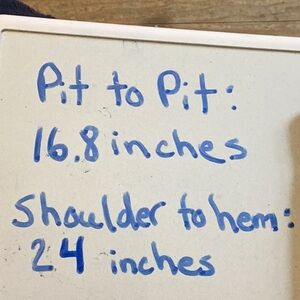 Pit to Pit:
16.8 inches
Shoulder to hem:
24 inches